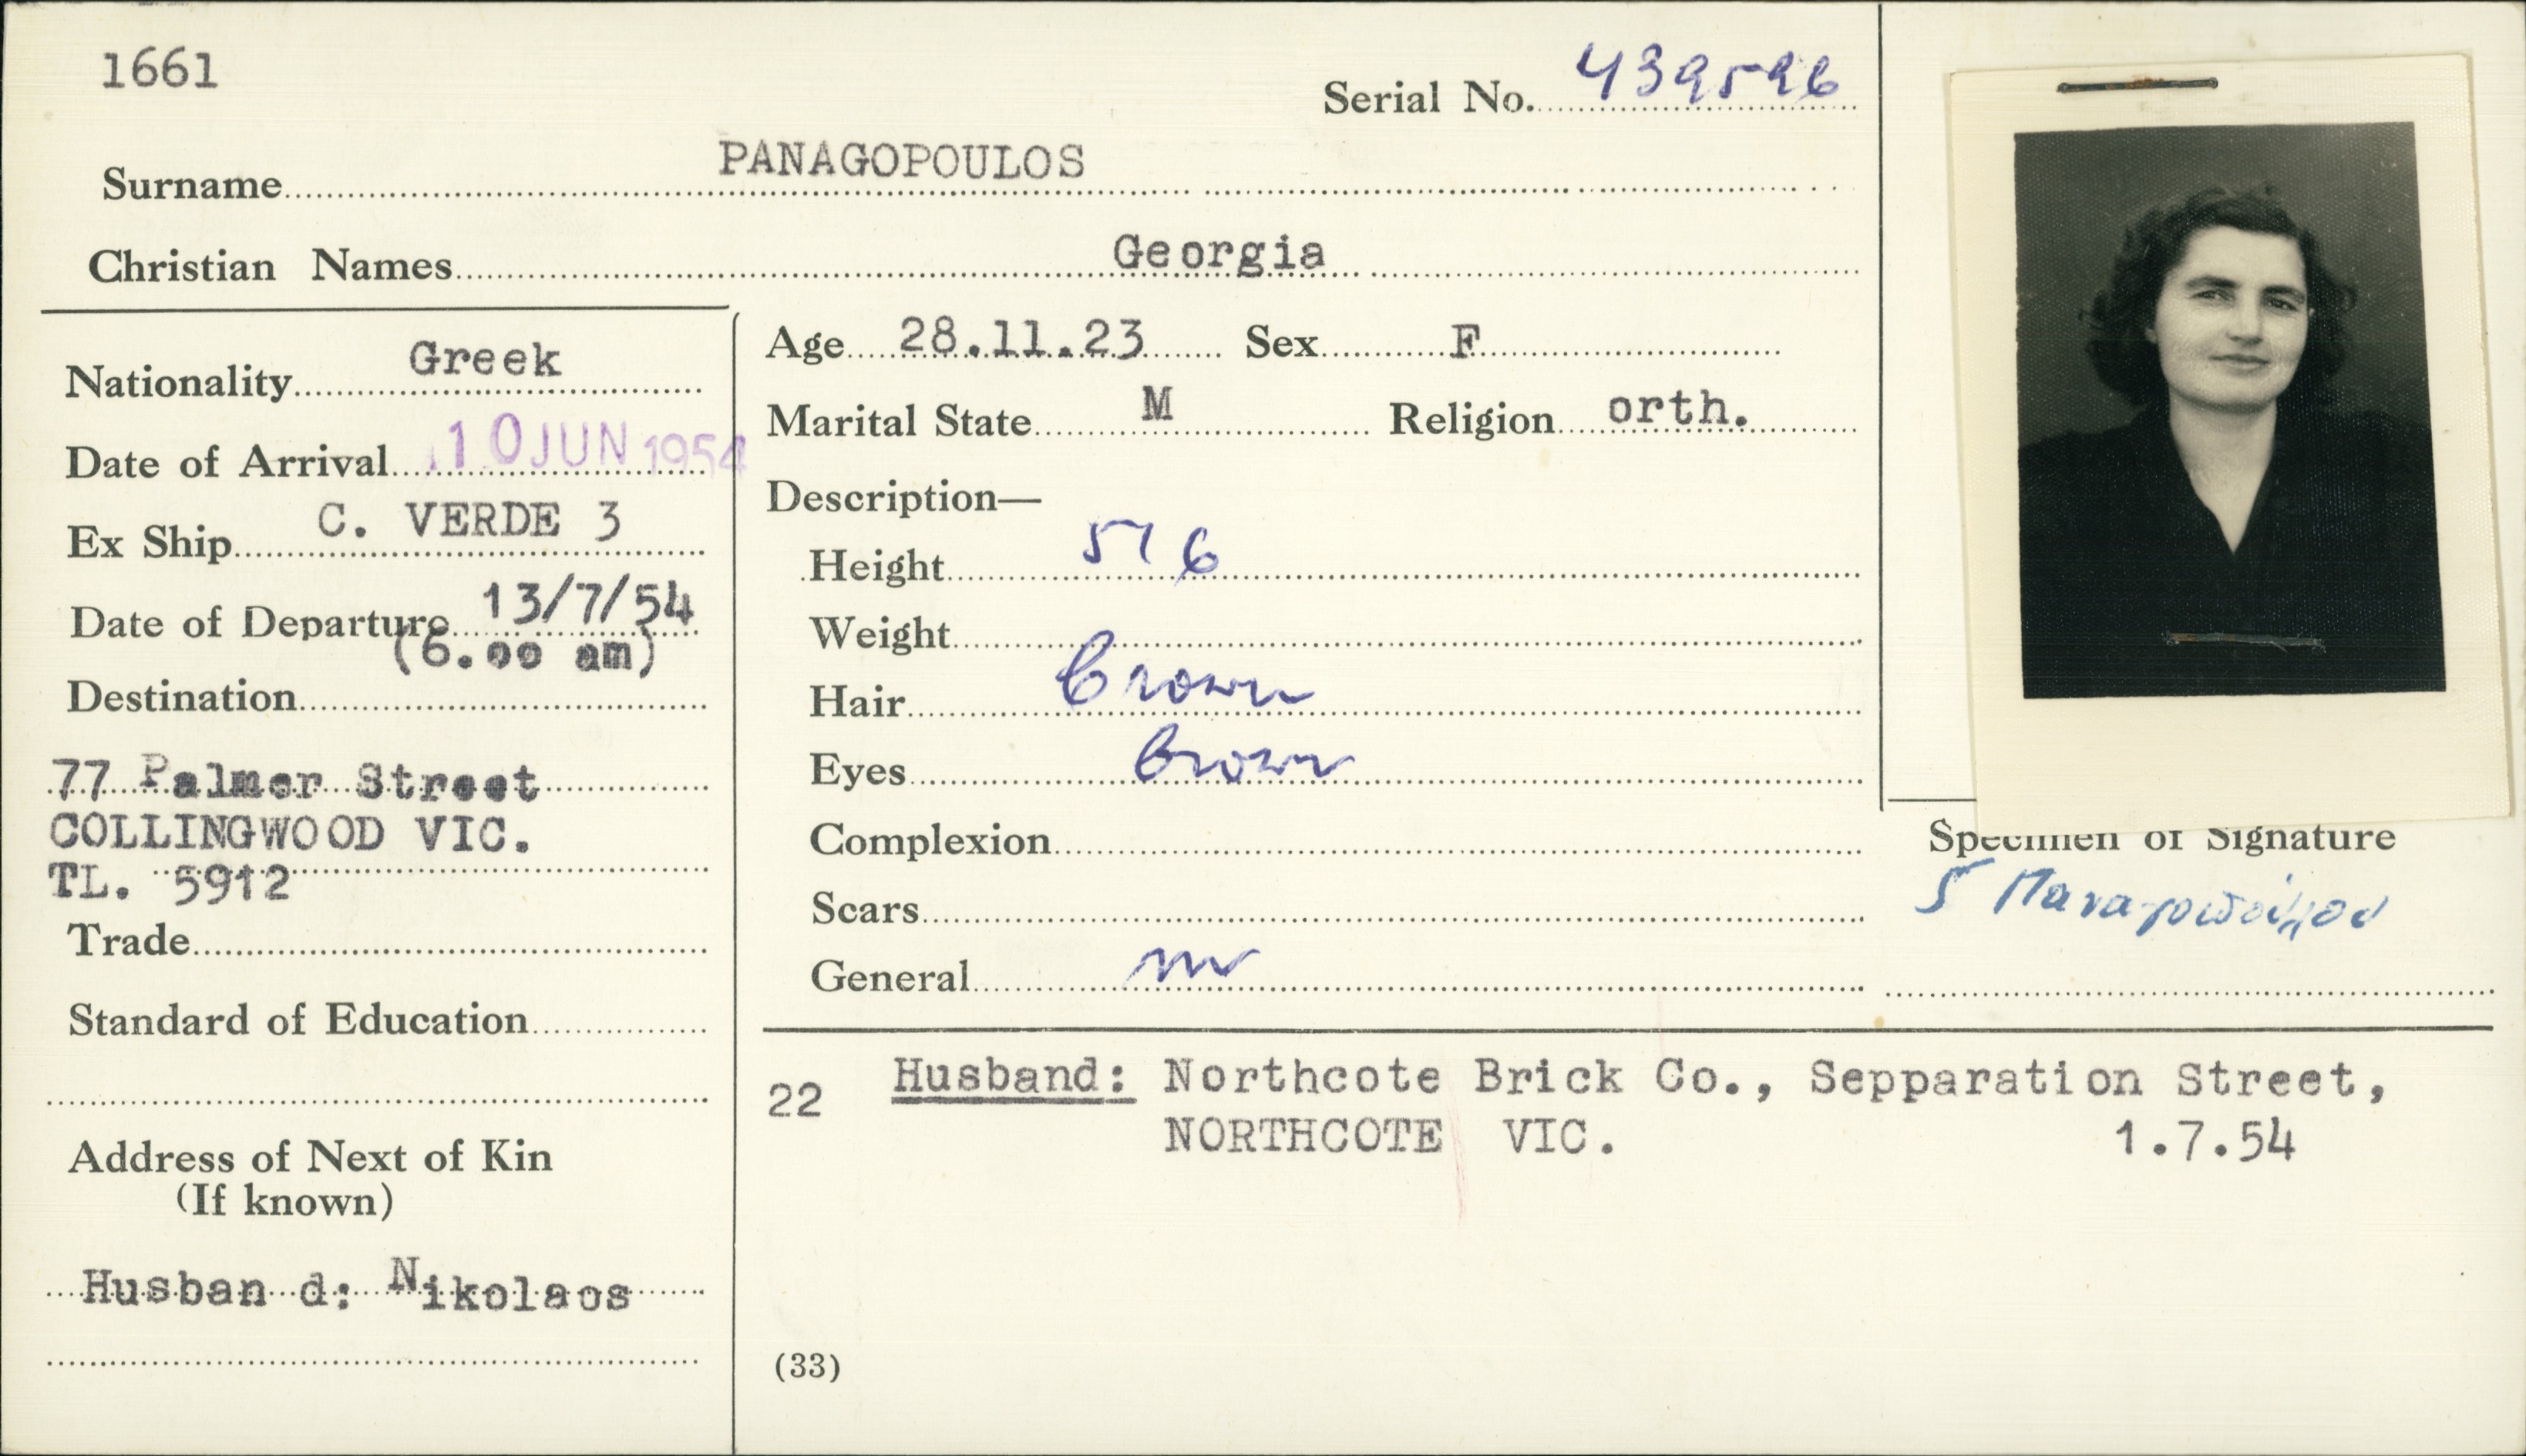 1661
Serial No. 439596
Surname PANAGOPOULOS
Christian Names Georgia
Nationality Greek
Date of Arrival 10 JUN 1954
Ex Ship C. VERDE 3
Date of Departure 13/7/54
(6.00 am)
Destination
77 Palmer Street
COLLINGWOOD VIC.
TL. 5912
Trade
Standard of Education
Address of Next of Kin
(If known)
Husban d: Nikolaos
Age 28.11.23 Sex F
Marital State M Religion orth.
Description—
Height 5' 6
Weight
Hair Brown
Eyes Brown
Complexion
Scars
General
Specimen of Signature
Γ Παναγοπούλου
22 Husband: Northcote Brick Co., Sepparation Street,
NORTHCOTE VIC. 1.7.54
(33)